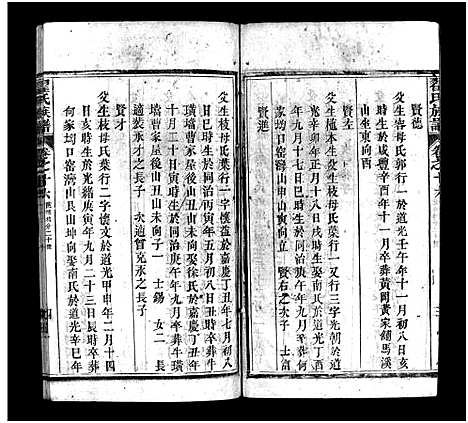 瞿氏族譜
卷之十六
賢德
父生春母氏郭行一於道光壬午年十一月初八日亥
時生於咸豐辛酉年十一月卒葬黃岡黃家鋪馬溪
山坐東向西
賢左
父生植木生父生枝母氏葉行一又行三字光朝於道
光辛卯年正月十八日戌時生娶南氏於道光丁酉
年九月十七日巳時生於同治庚午年九月卒葬何
家坳口窑澇山申山寅向 賢右之次子 士富
父生枝母氏葉行一字懷益於嘉慶丁丑年七月初八
日巳時生於同治寅年五月初九日申時卒葬牛
墻曹家屋後山丑山未向子一 士錫 女二 長
適裝才晟之長子 次適曾克永之長子
賢才
父生枝母氏葉行二字懷文於道光甲申年二月十四
日亥時生於光緒庚寅年九月二十三日辰時卒葬
何家坳口窑澇山艮山坤向娶南氏於道光辛巳年
十月二十日寅時生於同治庚午年九月卒葬牛